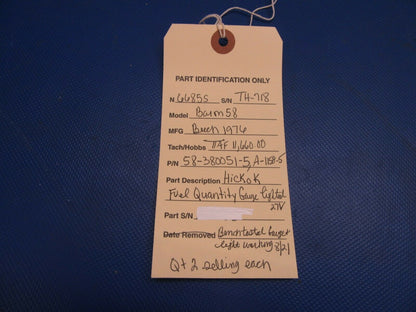 PART IDENTIFICATION ONLY
N 6685S S/N TH-718
Model Baron 58
MFG Beech 1976
Tach/Hobbs TTAF 11,660.00
P/N 58-380051-5, A-1158-5
Part Description Hickok
Fuel Quantity Gauge lighted
27V
Part S/N
Date Removed Bench tested Gauge &
light working 8/21
Qt 2 selling each